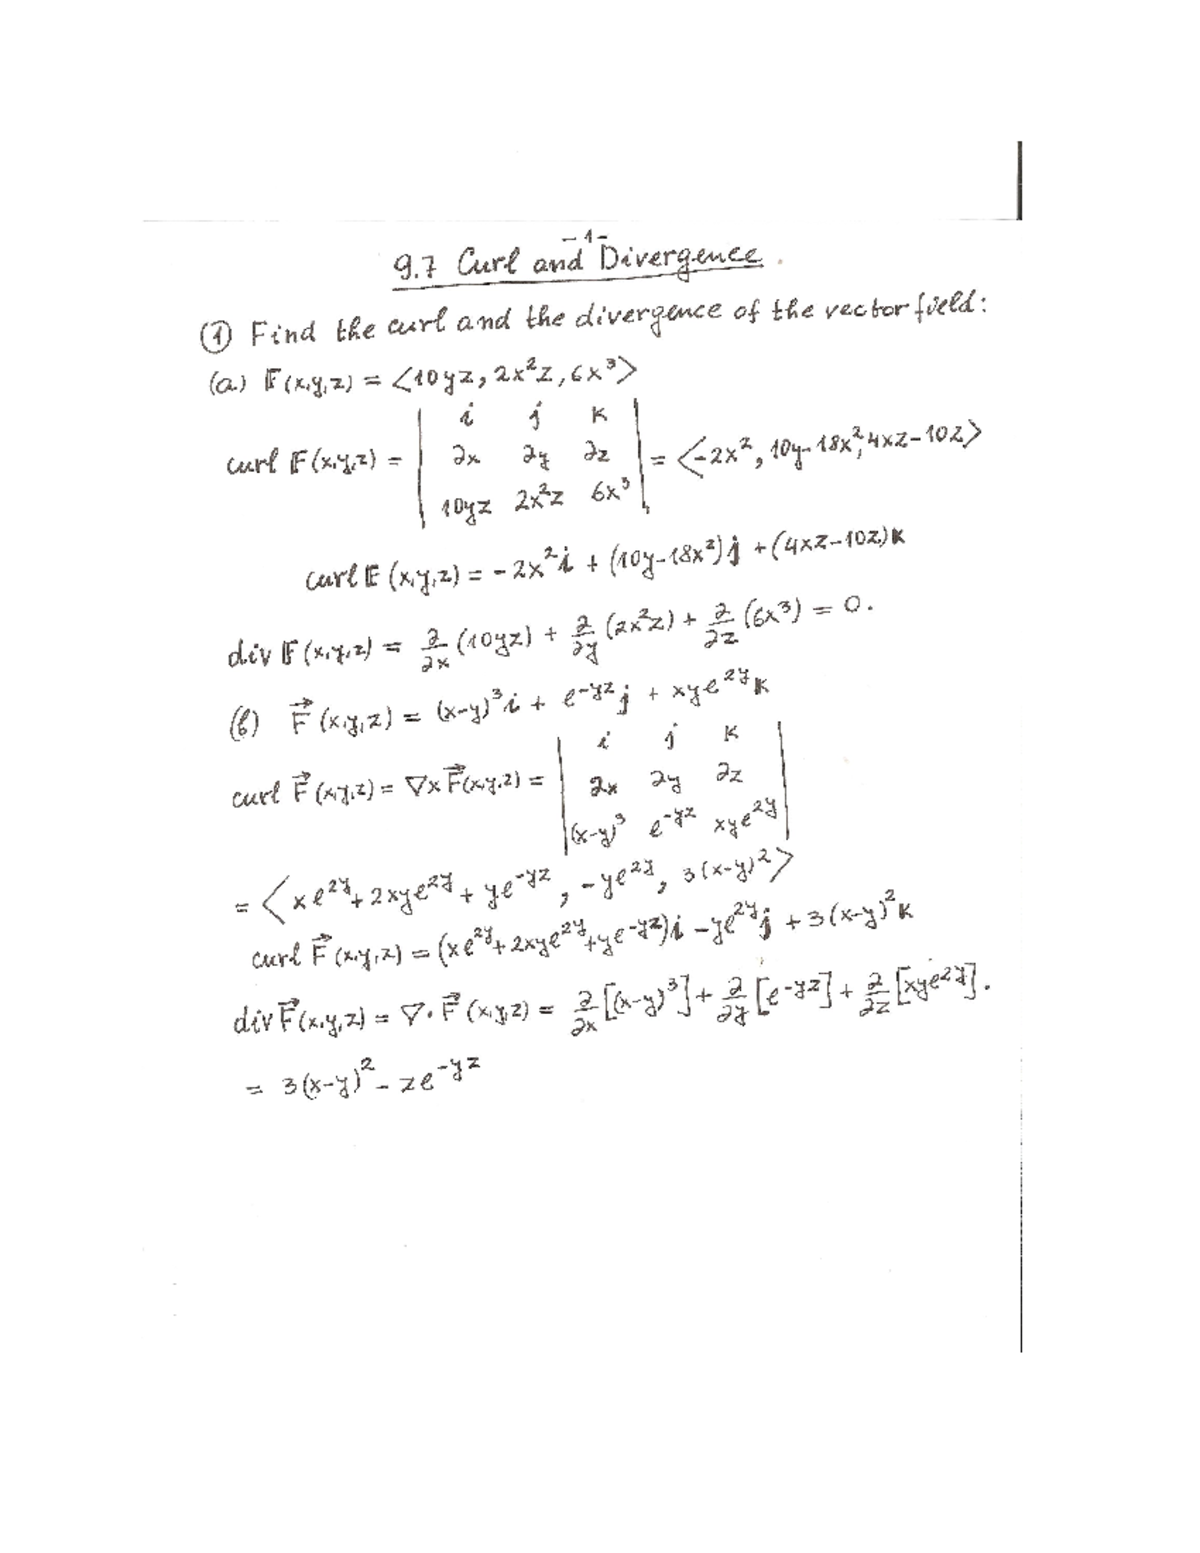 -1-
9.7 Curl and Divergence.
① Find the curl and the divergence of the vector field:
(a) F(x,y,z) = <10yz, 2x²z, 6x³>
i j k
curl F(x,y,z) = | ∂x ∂y ∂z | = <-2x², 10y-18x², 4xz-10z>
10yz 2x²z 6x³
curl F(x,y,z) = -2x²i + (10y-18x²)j + (4xz-10z)k
div F(x,y,z) = ∂/∂x (10yz) + ∂/∂y (2x²z) + ∂/∂z (6x³) = 0.
(b) F⃗(x,y,z) = (x-y)³i + e^{-yz}j + xye^{2y}k
i j k
curl F⃗(x,y,z) = ∇×F⃗(x,y,z) = | ∂x ∂y ∂z |
(x-y)³ e^{-yz} xye^{2y}
= <xe^{2y}+2xye^{2y}+ye^{-yz}, -ye^{2y}, 3(x-y)²>
curl F⃗(x,y,z) = (xe^{2y}+2xye^{2y}+ye^{-yz})i -ye^{2y}j +3(x-y)²k
div F⃗(x,y,z) = ∇·F⃗(x,y,z) = ∂/∂x [(x-y)³] + ∂/∂y [e^{-yz}] + ∂/∂z [xye^{2y}].
= 3(x-y)² - ze^{-yz}